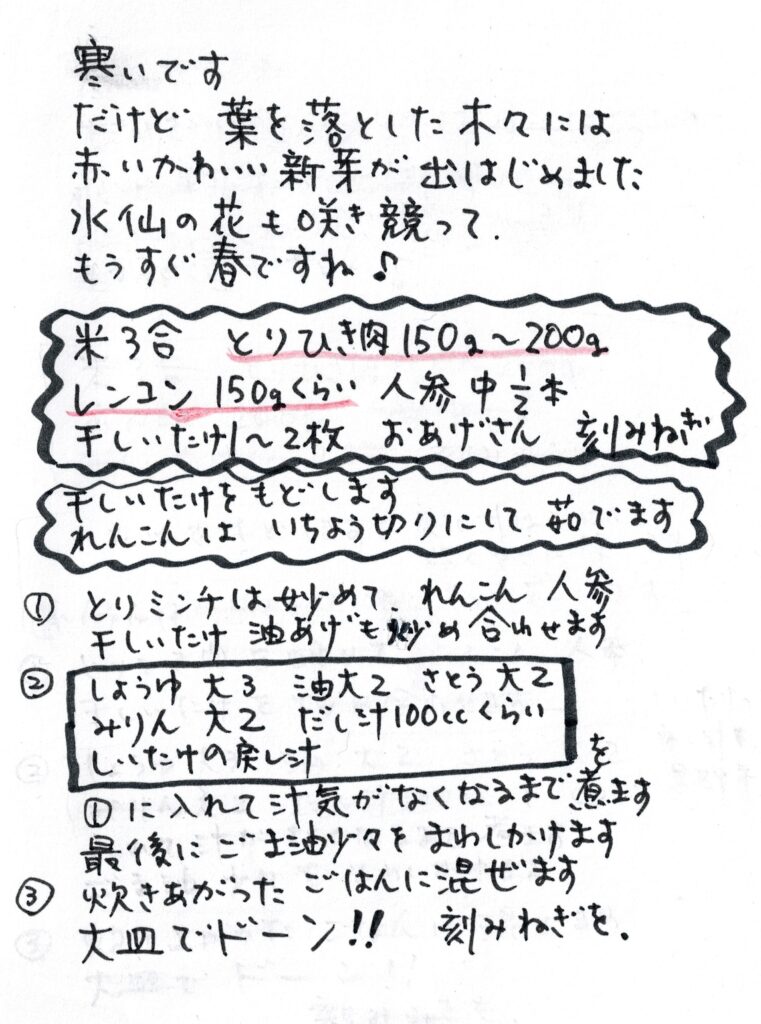 寒いです
だけど 葉を落とした木々には
赤いかわいい新芽が出はじめました
水仙の花も咲き競って、
もうすぐ春ですね♪
米3合 とりひき肉150g〜200g
レンコン 150gくらい 人参中1/2本
干しいたけ1〜2枚 おあげさん 刻みねぎ
干しいたけをもどします
れんこんは いちょう切りにして 茹でます
① とりミンチは炒めて、れんこん 人参
干しいたけ 油あげも炒め合わせます
② しょうゆ 大3 油大2 さとう 大2
みりん 大2 だし汁100ccくらい
しいたけの戻し汁 を
①に入れて汁気がなくなるまで煮ます
最後にごま油少々をまわしかけます
③ 炊きあがったごはんに混ぜます
大皿でドーン!! 刻みねぎを。